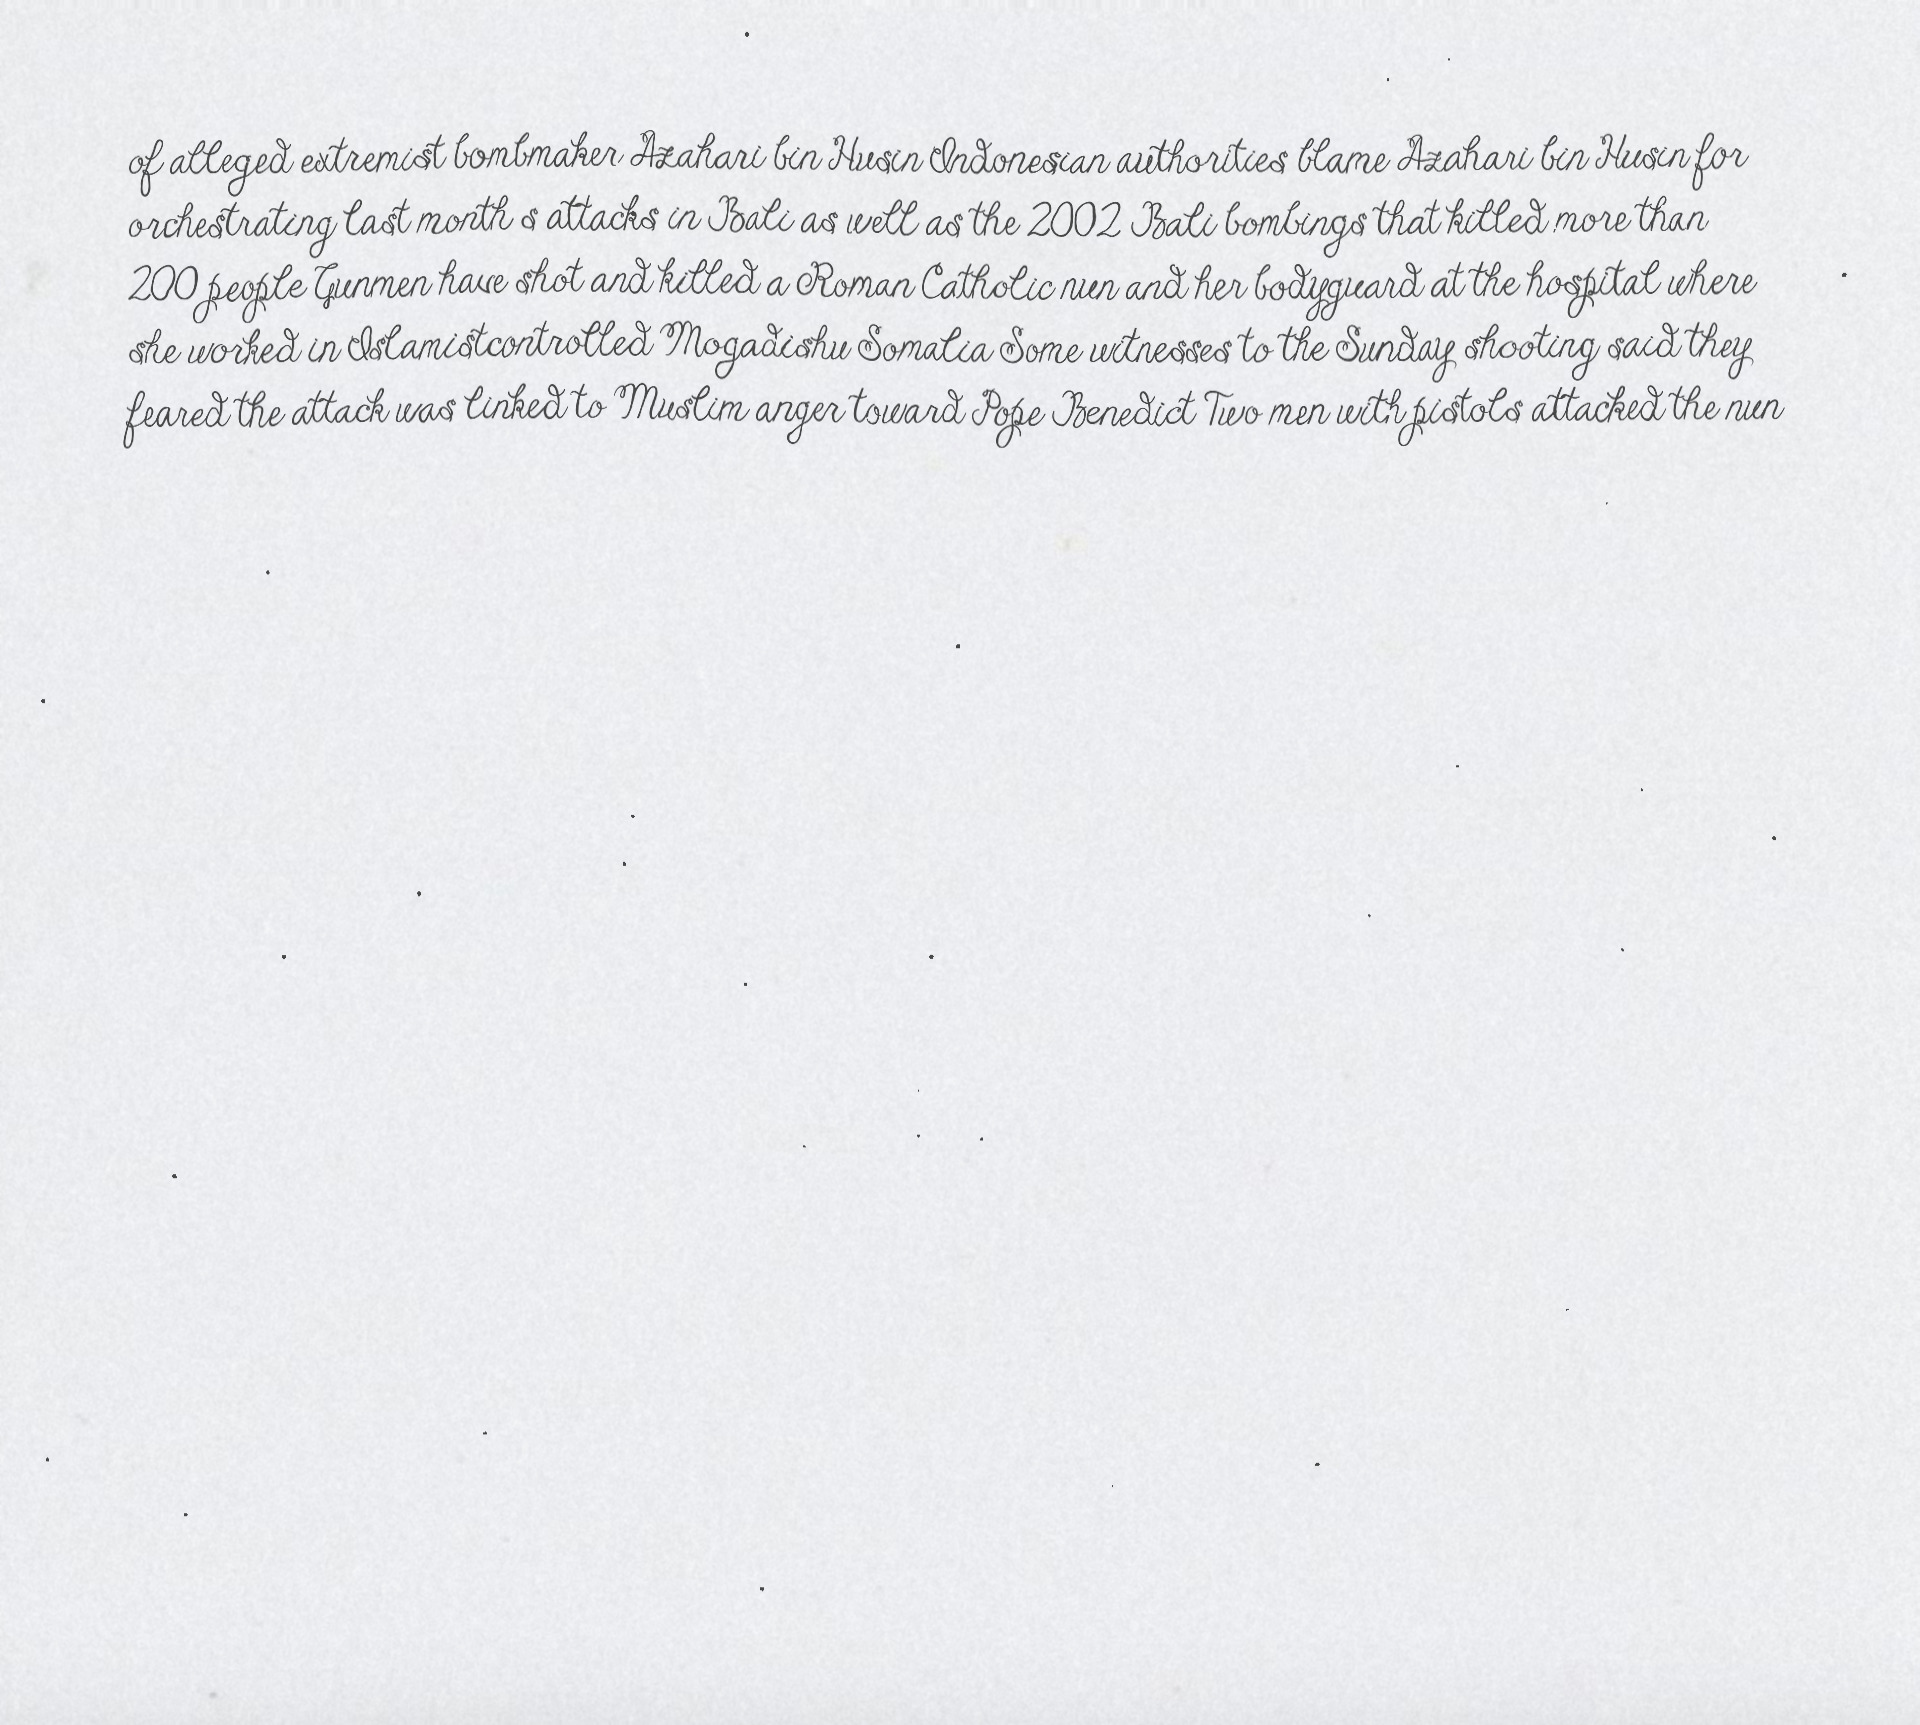 of alleged extremist bombmaker Azahari bin Husin Indonesian authorities blame Azahari bin Husin for
orchestrating last month s attacks in Bali as well as the 2002 Bali bombings that killed more than
200 people Gunmen have shot and killed a Roman Catholic nun and her bodyguard at the hospital where
she worked in Islamistcontrolled Mogadishu Somalia Some witnesses to the Sunday shooting said they
feared the attack was linked to Muslim anger toward Pope Benedict Two men with pistols attacked the nun